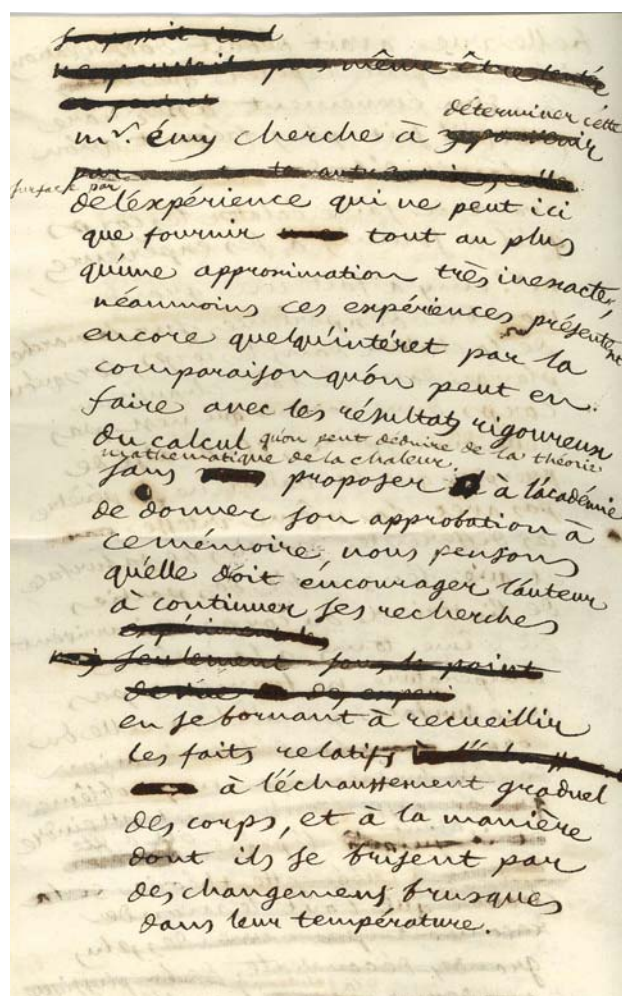 ne pouvait pas même être tentée
déterminer cette
mr. émy cherche à
surface par
de l'éxpérience qui ne peut ici
que fournir tout au plus
qu'une approximation très inexacte,
néanmoins ces expériences présentent
encore quelqu'intéret par la
comparaison qu'on peut en
faire avec les résultats rigoureux
du calcul qu'on peut déduire de la théorie
mathématique de la chaleur.
sans proposer à l'académie
de donner son approbation à
ce mémoire, nous pensons
qu'elle doit éncourager l'auteur
à continuer ses recherches
expérimentales
seulement sous le point
de vue des experi
en se bornant à recueillir
les faits relatifs
à l'échauffement graduel
des corps, et à la manière
dont ils se brisent par
des changemens brusques
dans leur température.